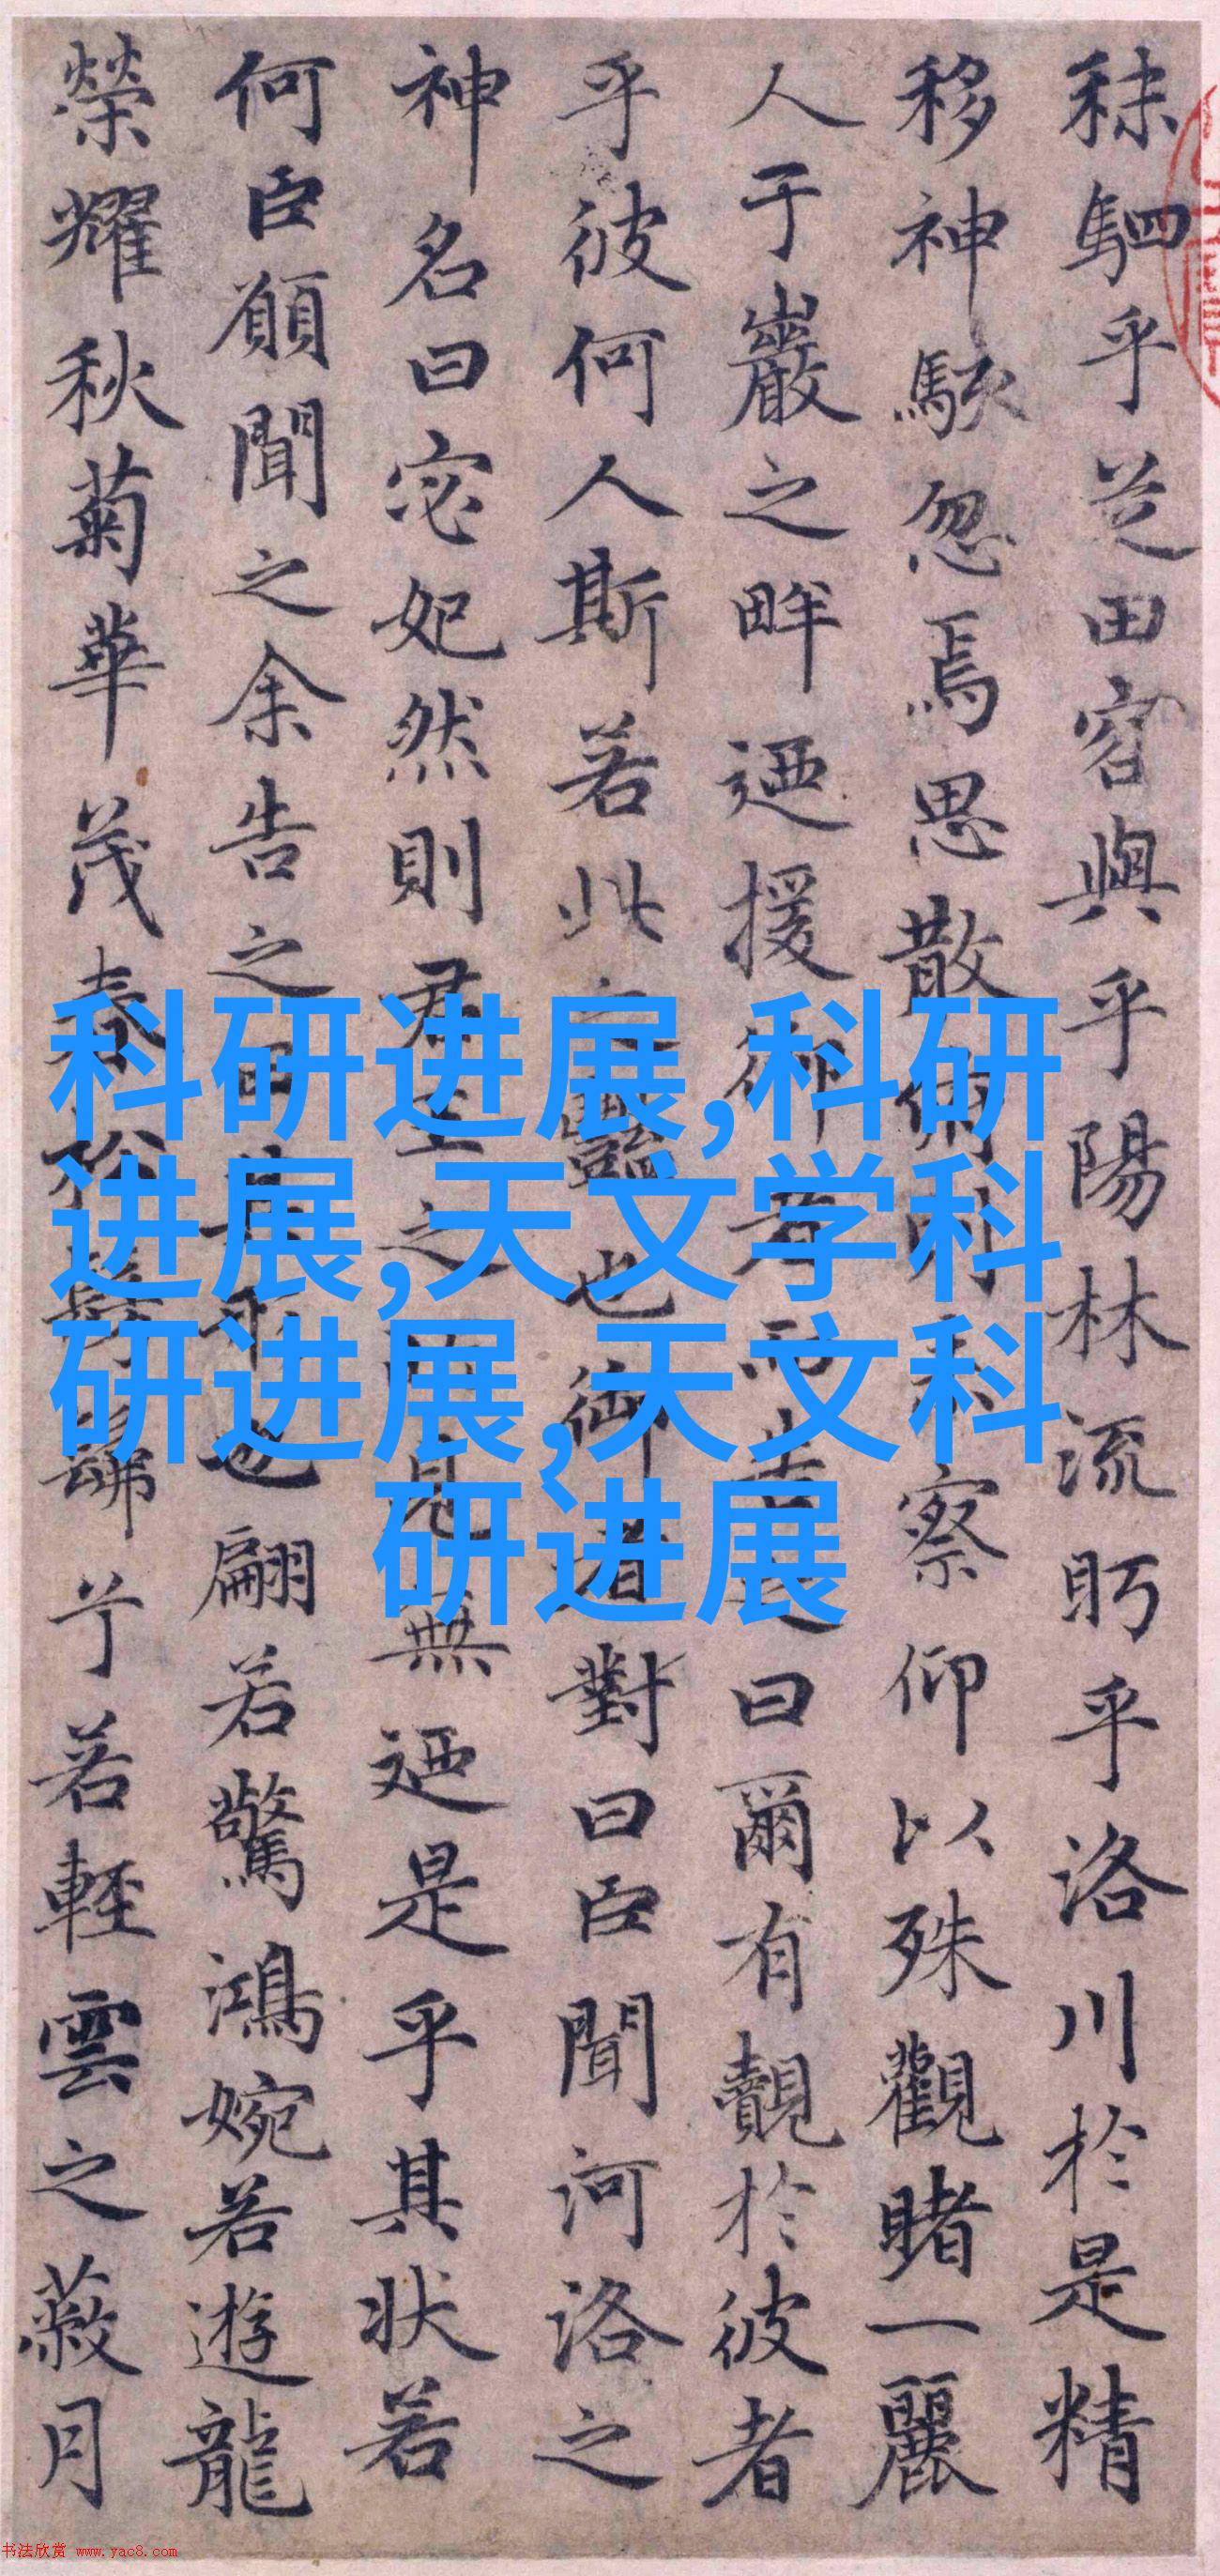 秣駟乎芝田容與乎陽林流眄乎洛川於是精
移神駭忽焉思散俯則未察仰以殊觀睹一麗
人于巖之畔迺援御者而告之曰爾有覿於彼者
乎彼何人斯若此之豔也御者對曰臣聞河洛之
神名曰宓妃然則君王之所見無迺是乎其狀若
何臣願聞之余告之曰其形也翩若驚鴻婉若遊龍
榮耀秋菊華茂春松髣髴兮若輕雲之蔽月
科研进展,科研
进展,天文学科
研进展,天文科
研进展
书法欣赏 www.yac8.com